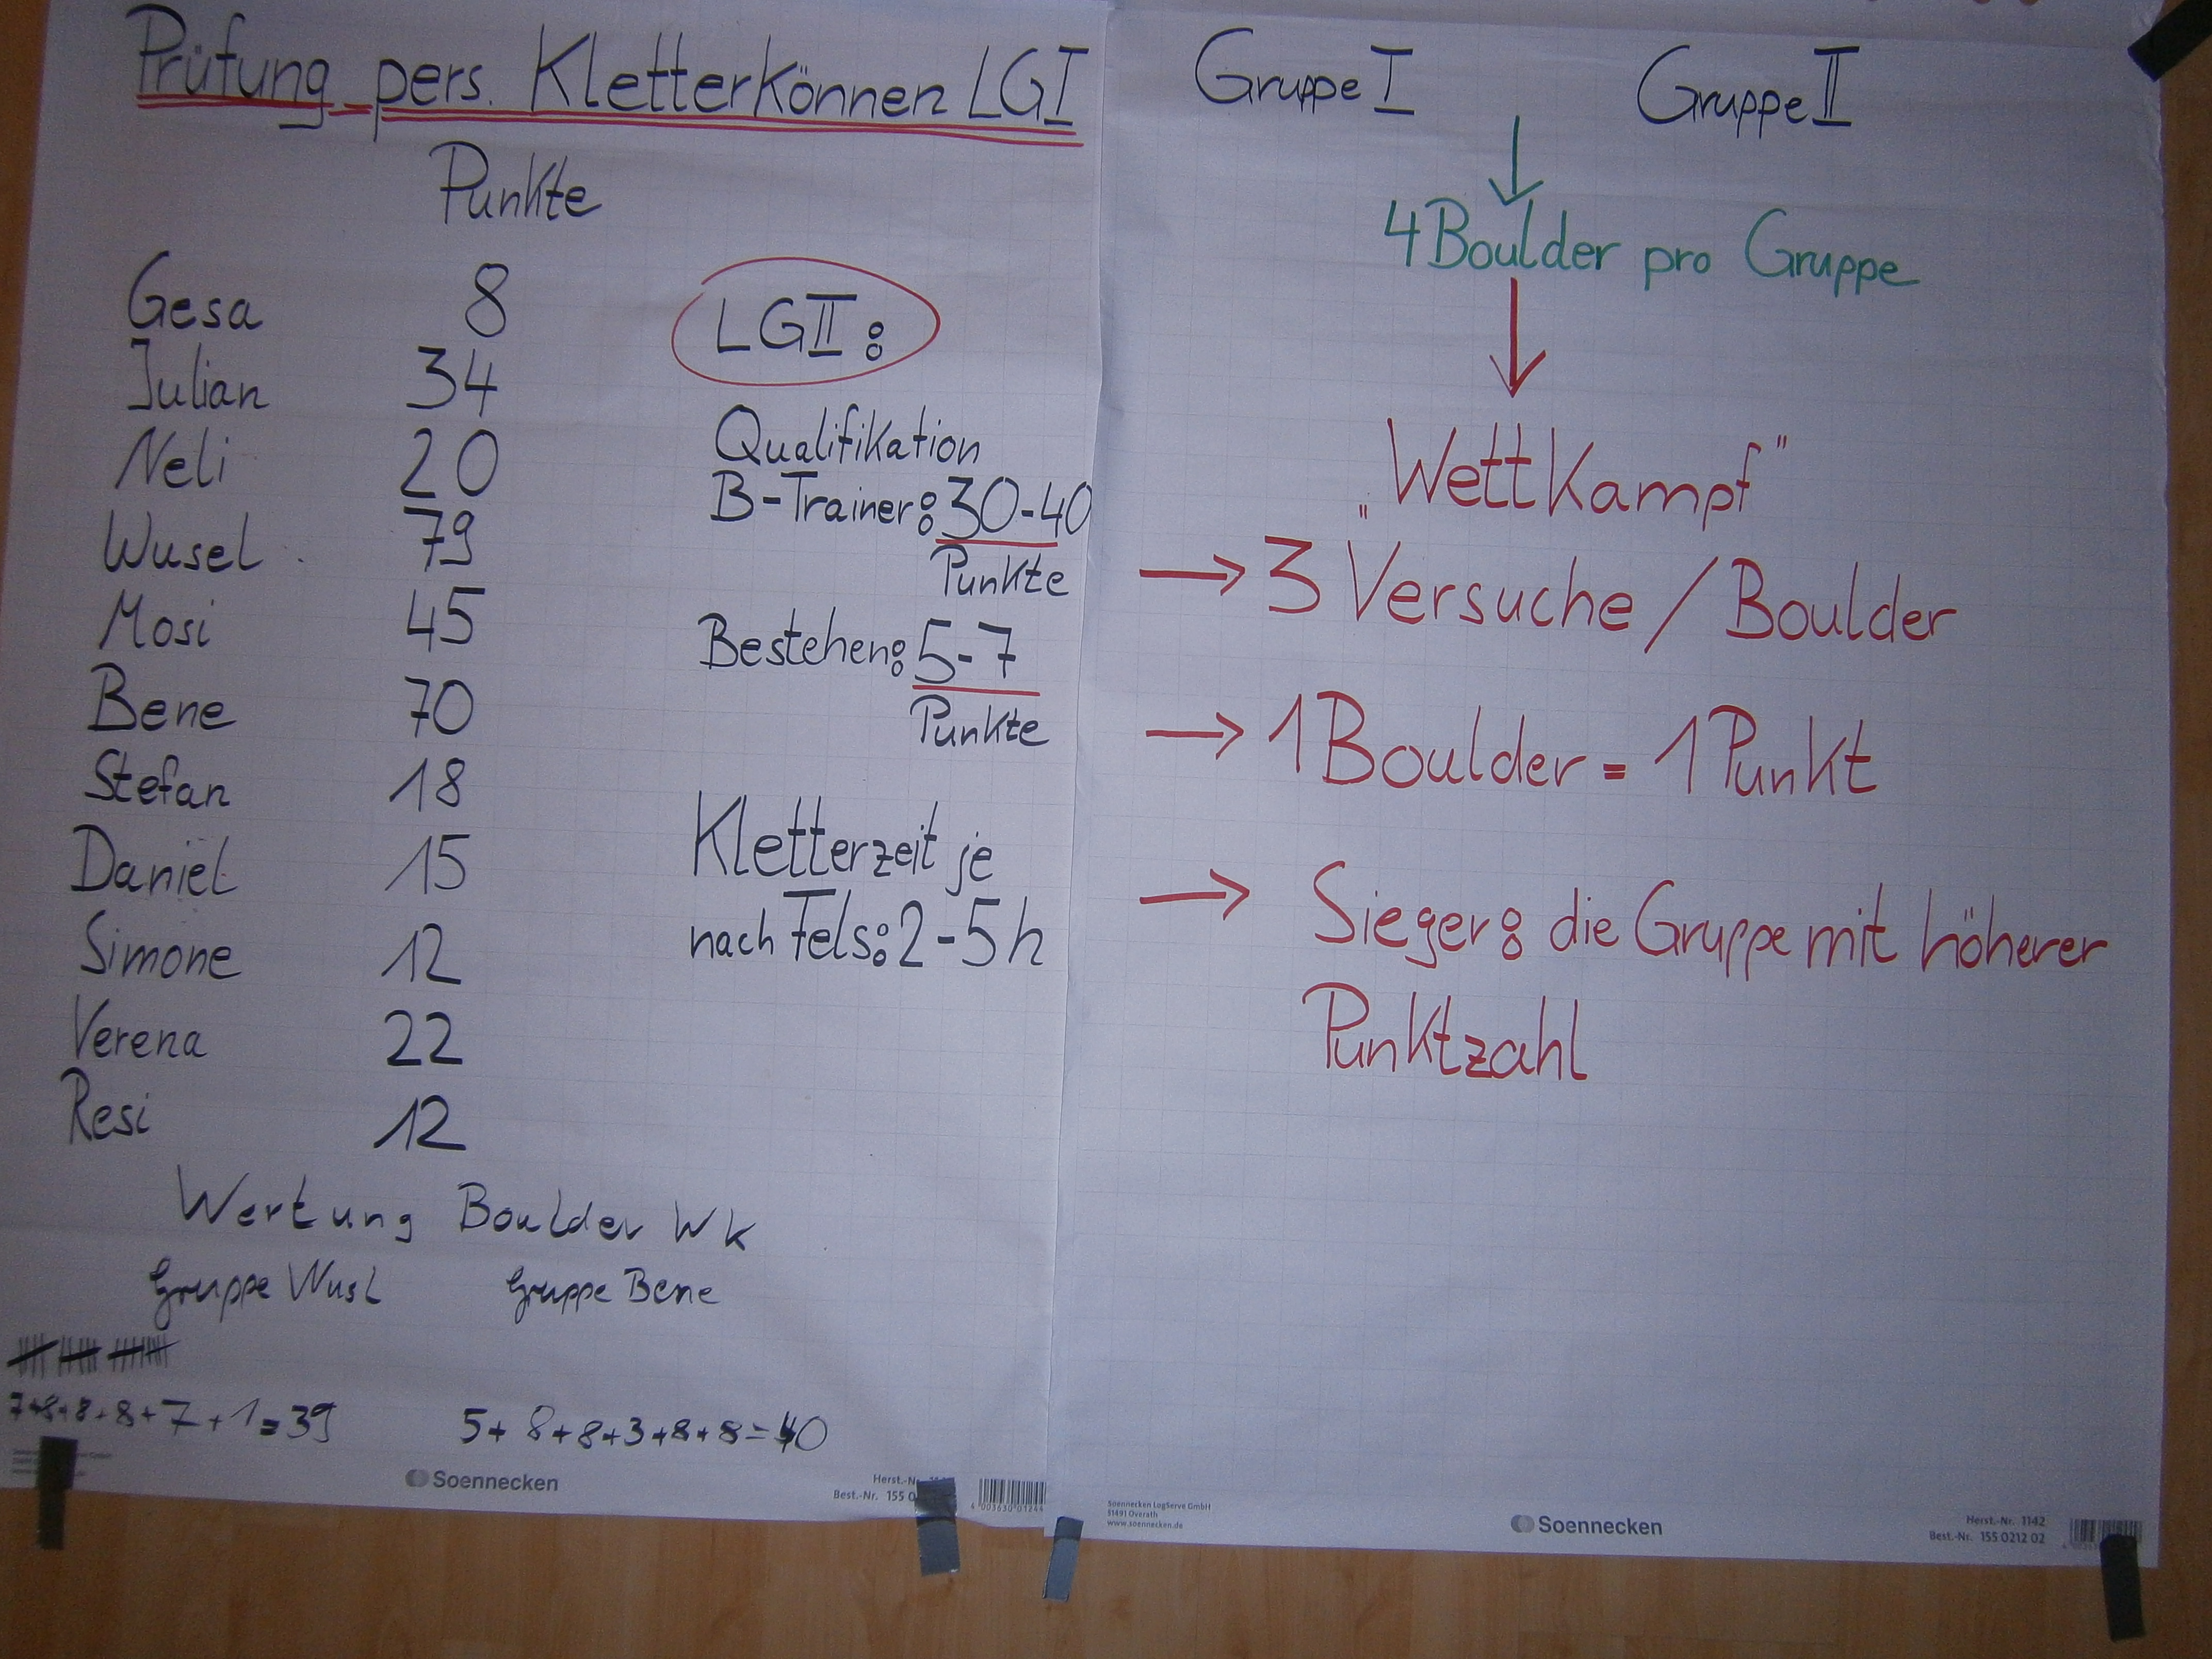 Prüfung pers. Kletterkönnen LGI
Punkte
Gesa 8
Julian 34
Neli 20
Wusel 79
Mosi 45
Bene 70
Stefan 18
Daniel 15
Simone 12
Verena 22
Resi 12
LGII:
Qualifikation
B-Trainer: 30-40
Punkte
Bestehen: 5-7
Punkte
Kletterzeit je
nach Fels: 2-5h
Wertung Boulder Wk
Gruppe Wusl Gruppe Bene
7+8+8+8+7+1=39 5+8+8+3+8+8=40
Soennecken
Herst.-Nr.
Best.-Nr. 155 0
4 003630 01244
Gruppe I Gruppe II
4 Boulder pro Gruppe
„Wettkampf"
→ 3 Versuche / Boulder
→ 1 Boulder = 1 Punkt
→ Sieger: die Gruppe mit höherer
Punktzahl
Soennecken LogServe GmbH
51491 Overath
www.soennecken.de
Soennecken
Herst.-Nr. 1142
Best.-Nr. 155 0212 02